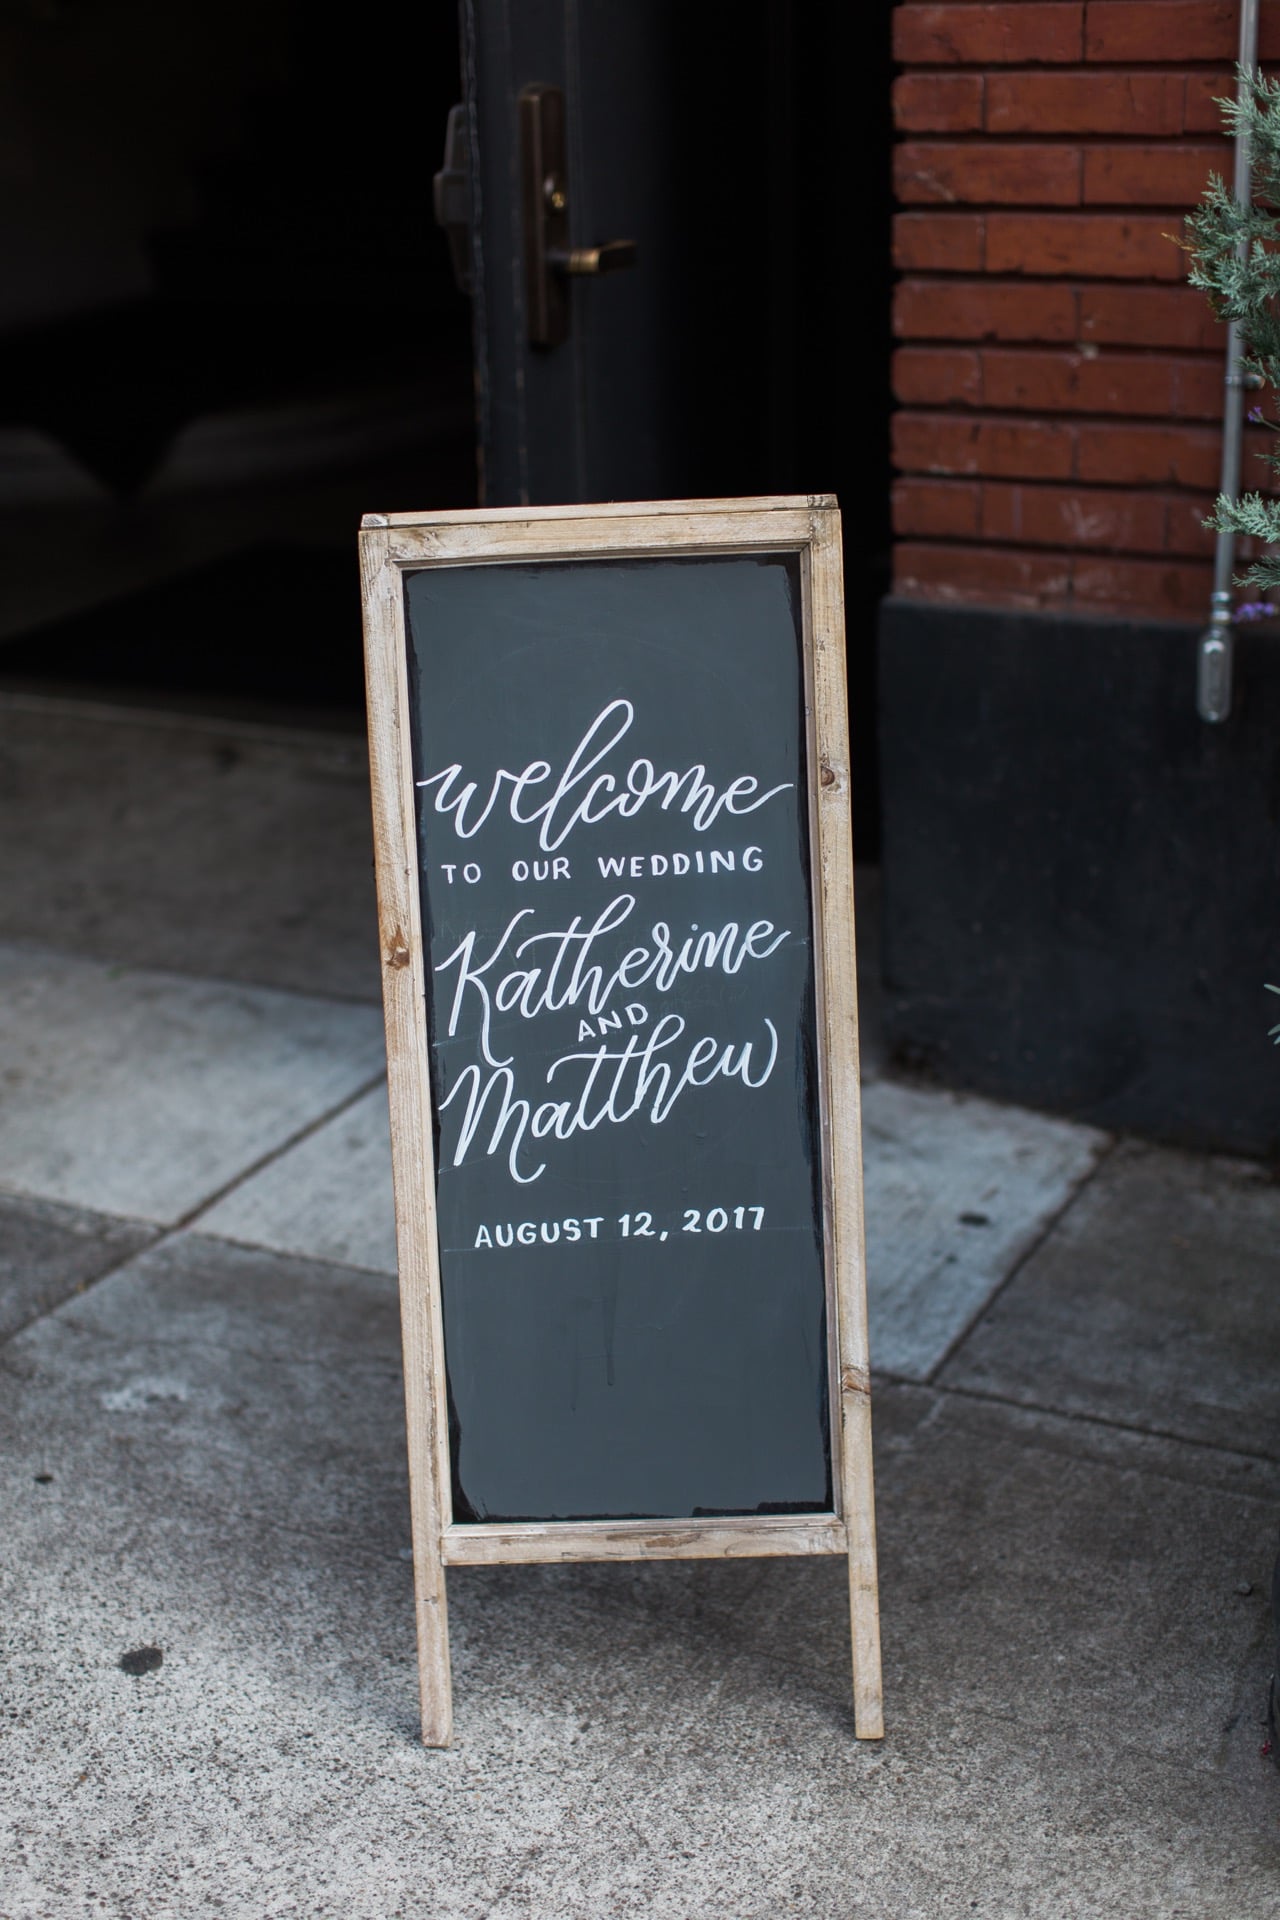 welcome
TO OUR WEDDING
Katherine
AND
Matthew
AUGUST 12, 2017